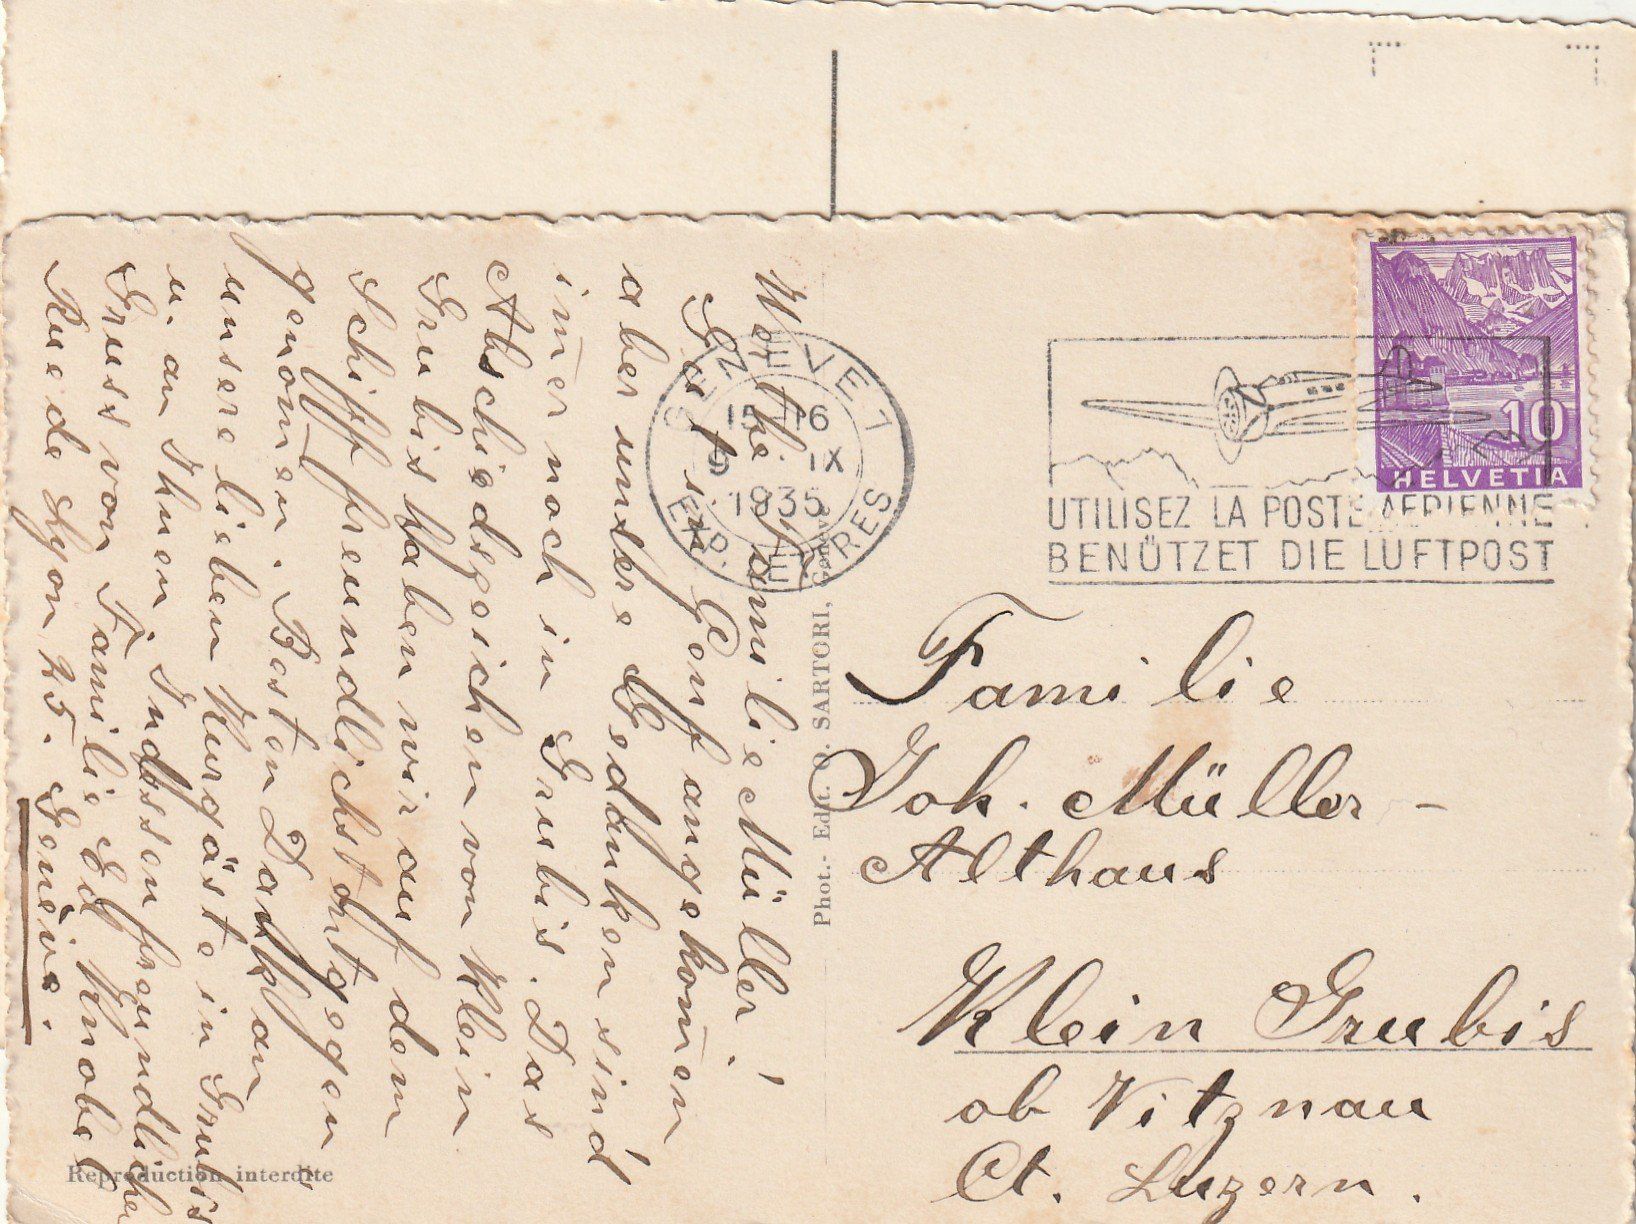 Werthe Familie Müller!
Gut in Genf angekom̅en
aber unsere Gedanken sind
im̅er noch in Grubis. Das
Abschiedszeichen von Klein
Grubis haben wir auf dem
Schiff freundlichst entgegen
genom̅en. Besten Dank an
unsere lieben Kurgäste in Grubis
u. an Ihnen. Indessen freundlicher
Gruss von Familie Ed Knobel
Rue de Lyon 25. Genève.
Reproduction interdite
Phot.- Edit. O. SARTORI, Genève
GENÈVE 1
15-16
9 IX
1935
EXP. LETTRES
UTILISEZ LA POSTE AERIENNE
BENÜTZET DIE LUFTPOST
10
HELVETIA
Familie
Joh. Müller -
Althaus
Klein Grubis
ob Vitznau
Ct. Luzern.